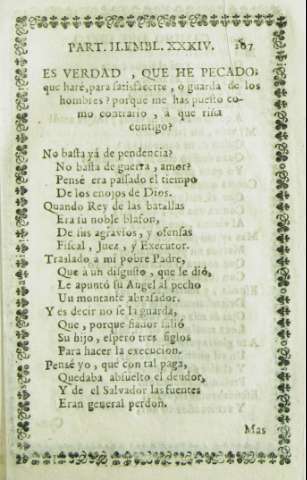 PART. II. EMBL. XXXIV. 167
ES VERDAD, QUE HE PECADO:
que haré, para satisfacerte, o guarda de los
hombres? porque me has puesto co-
mo contrario, à que riña
contigo?
No basta yá de pendencia?
No basta de guerra, amor?
Pensé era passado el tiempo
De los enojos de Dios.
Quando Rey de las batallas
Era tu noble blason,
De sus agravios, y ofensas
Fiscal, Juez, y Executor.
Traslado a mi pobre Padre,
Que à un disgusto, que le diò,
Le apuntó su Angel al pecho
Un montante abrasador.
Y es decir no se la guarda,
Que, porque fiador saliò
Su hijo, esperò tres siglos
Para hacer la execucion.
Pensé yo, que con tal paga,
Quedaba absuelto el deudor,
Y de el Salvador las fuentes
Eran general perdon.
Mas